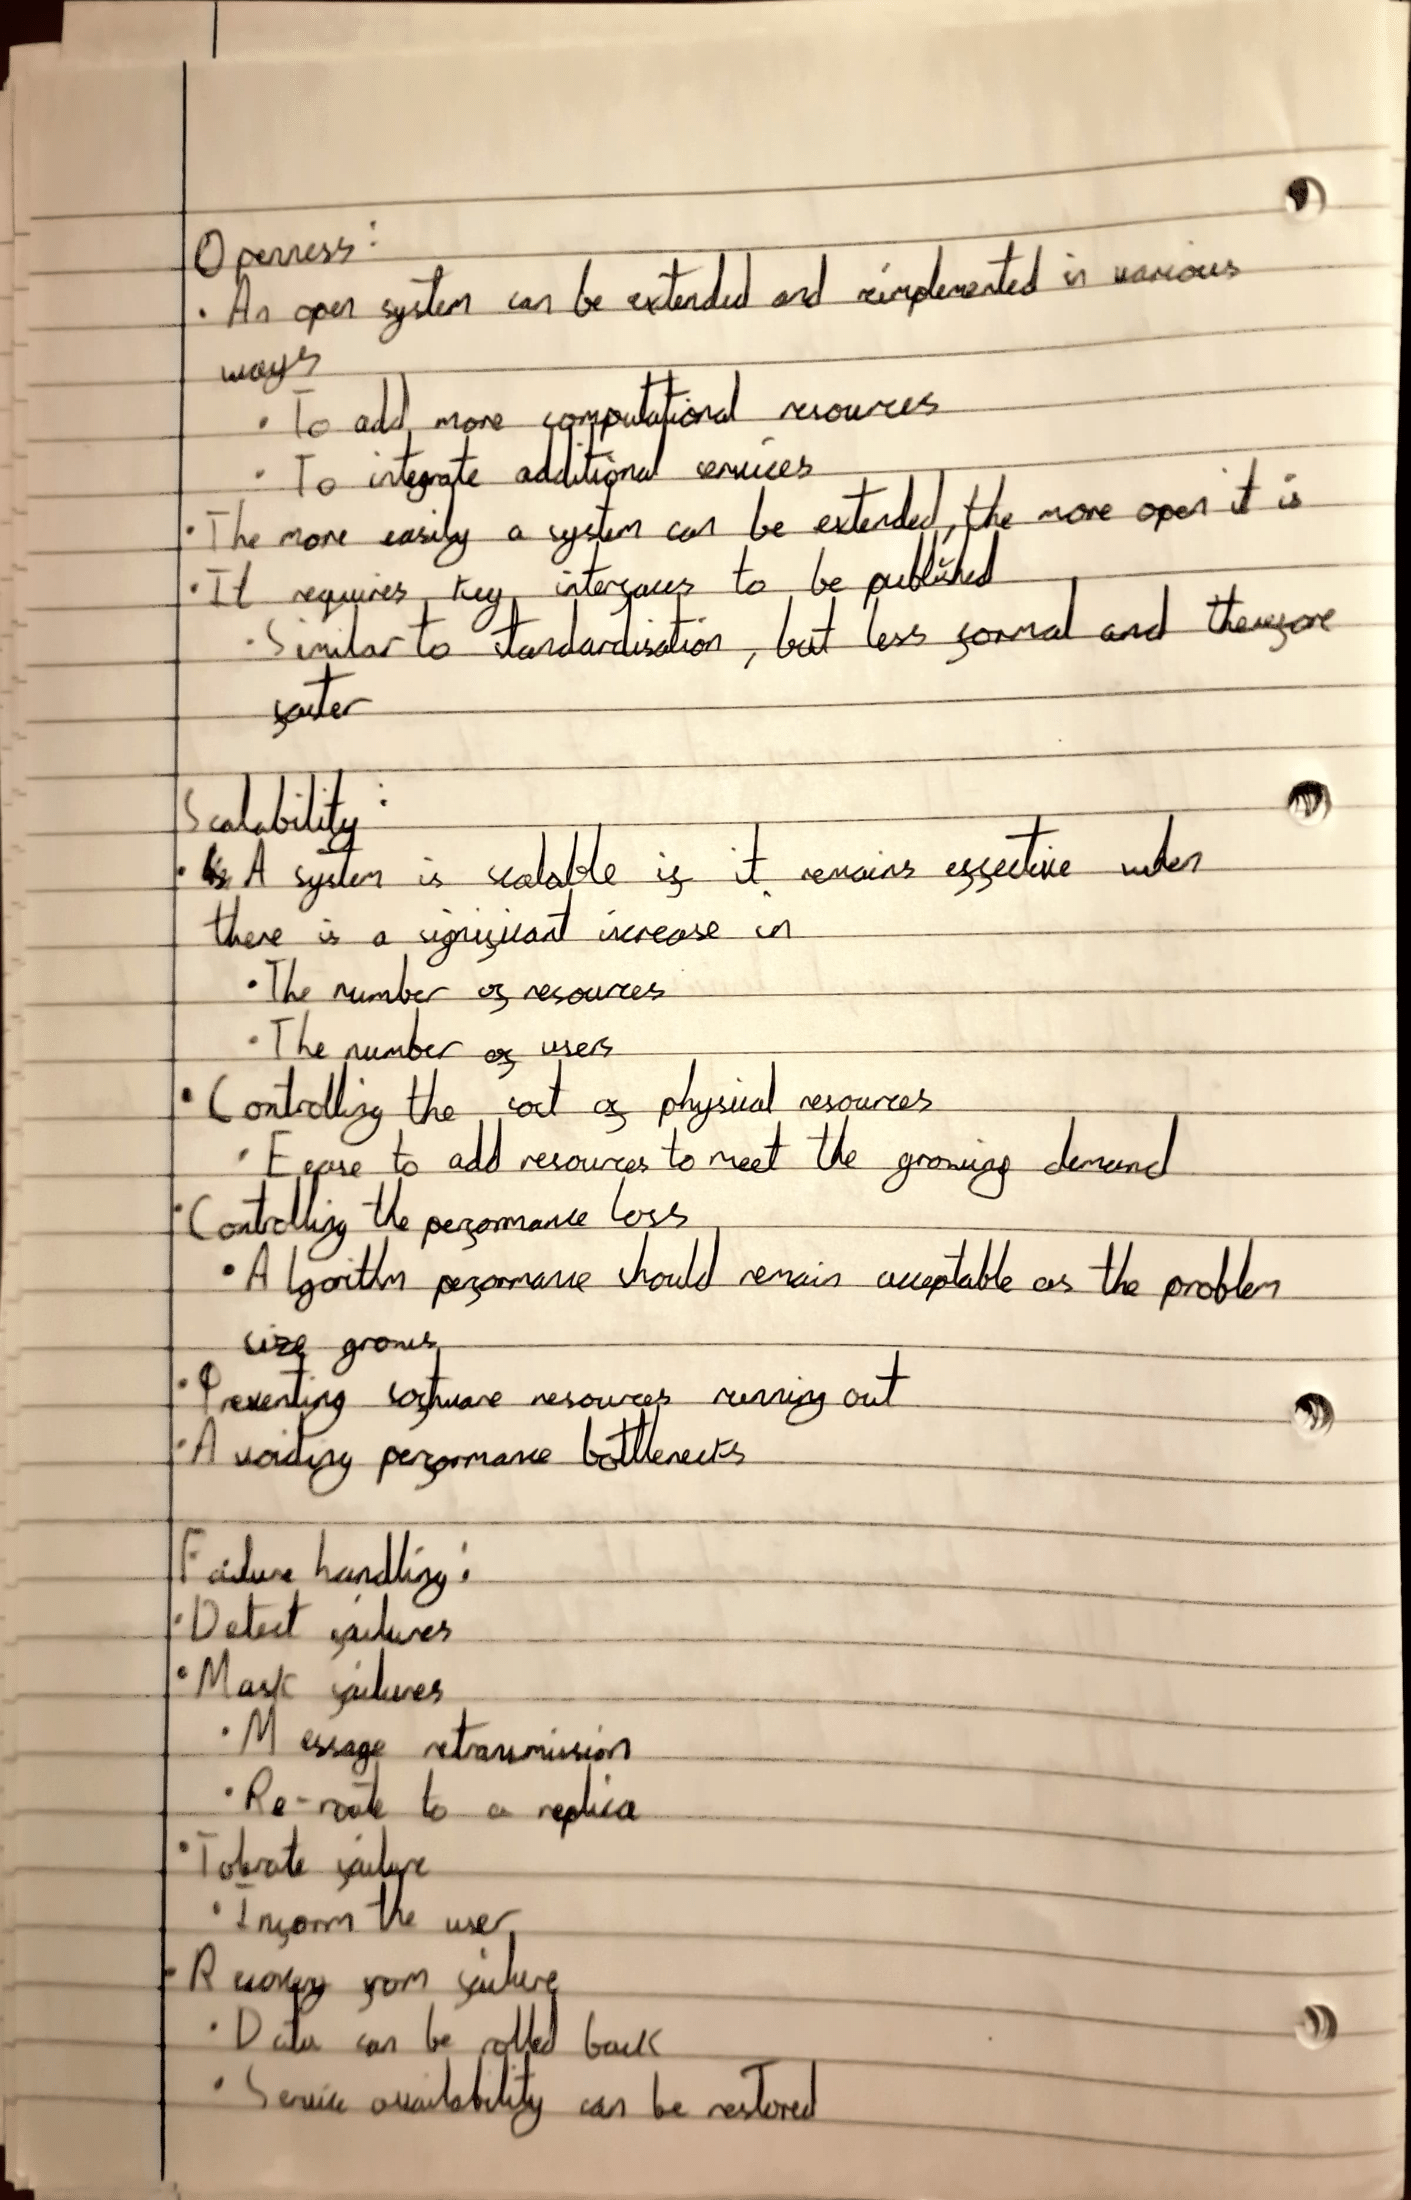 Openness:
· An open system can be extended and reimplemented in various
ways
· To add more computational resources
· To integrate additional services
· The more easily a system can be extended, the more open it is
· It requires key interfaces to be published
· Similar to standardisation, but less formal and therefore
faster
Scalability:
· A system is scalable if it remains effective when
there is a significant increase in
· The number of resources
· The number of users
· Controlling the cost of physical resources
· Ease to add resources to meet the growing demand
· Controlling the performance loss
· Algorithm performance should remain acceptable as the problem
size grows
· Preventing software resources running out
· Avoiding performance bottlenecks
Failure handling:
· Detect failures
· Mask failures
· Message retransmission
· Re-route to a replica
· Tolerate failure
· Inform the user
· Recovery from failure
· Data can be rolled back
· Service availability can be restored